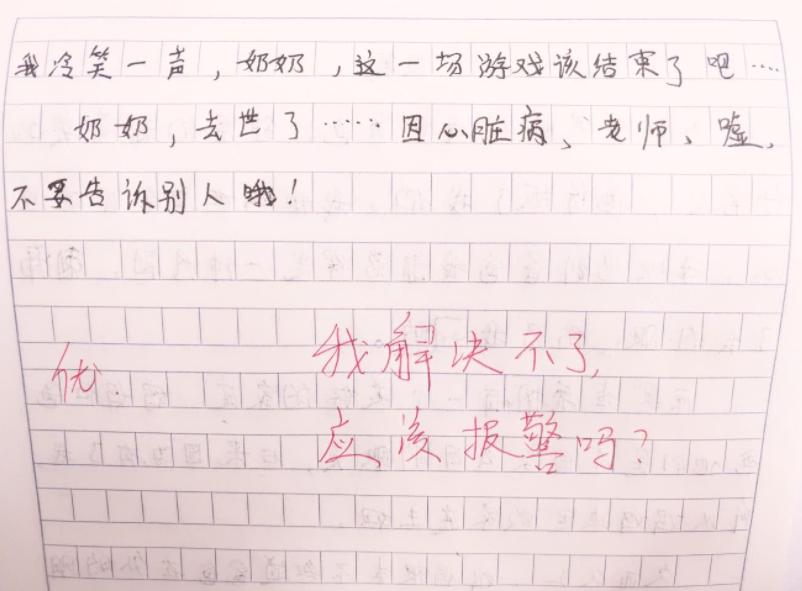 我冷笑一声，奶奶，这一场游戏该结束了吧……
奶奶，去世了……因心脏病、老师、嘘，
不要告诉别人哦！
优
我解决不了，
应该报警吗？